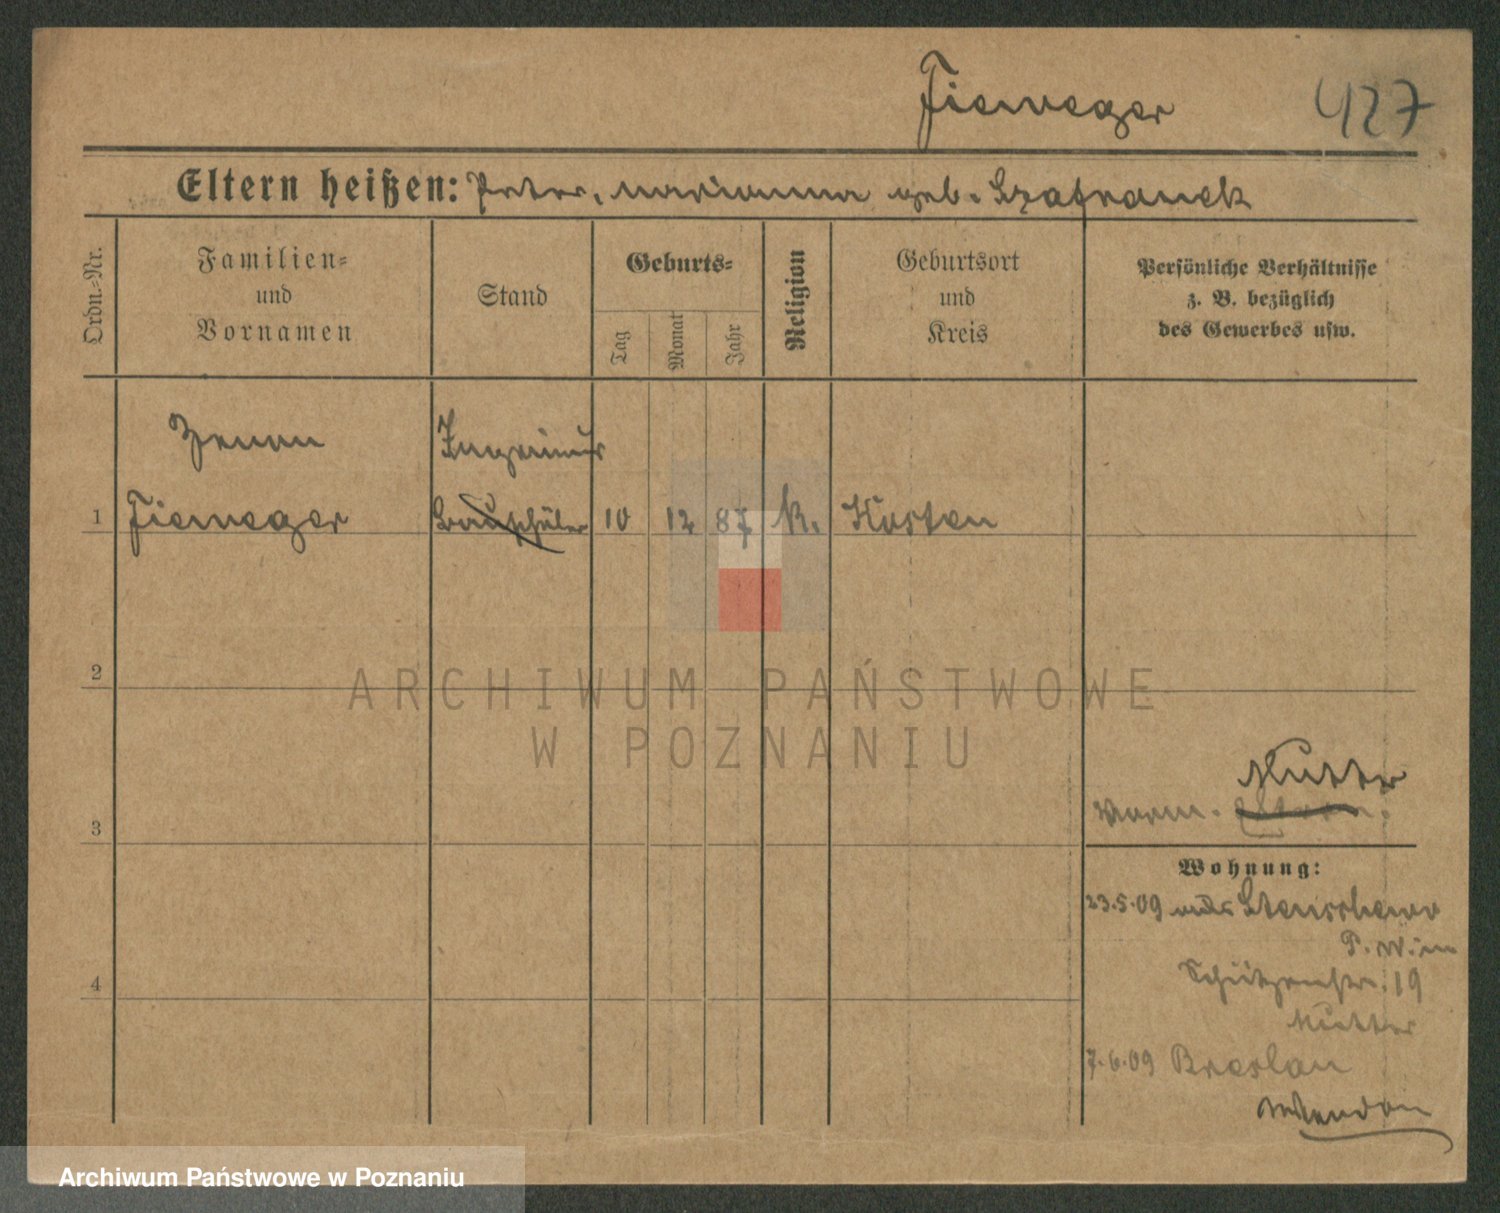 Fieweger 427
Eltern heißen: Peter, Marianna geb. Szafranek
Ordn.-Nr.
Familien-
und
Vornamen
Stand
Geburts-
Tag
Monat
Jahr
Religion
Geburtsort
und
Kreis
Persönliche Verhältnisse
z. B. bezüglich
des Gewerbes usw.
Zenon
Ingenieur
1 Fieweger Bauschüler 10 12 87 k. Kosten
2
ARCHIWUM PAŃSTWOWE
W POZNANIU
Mutter
3
Wohnung:
23.5.09 aus Stenschewo
Schützenstr. 19
4
Mutter
7.6.09 Breslau
Archiwum Państwowe w Poznaniu